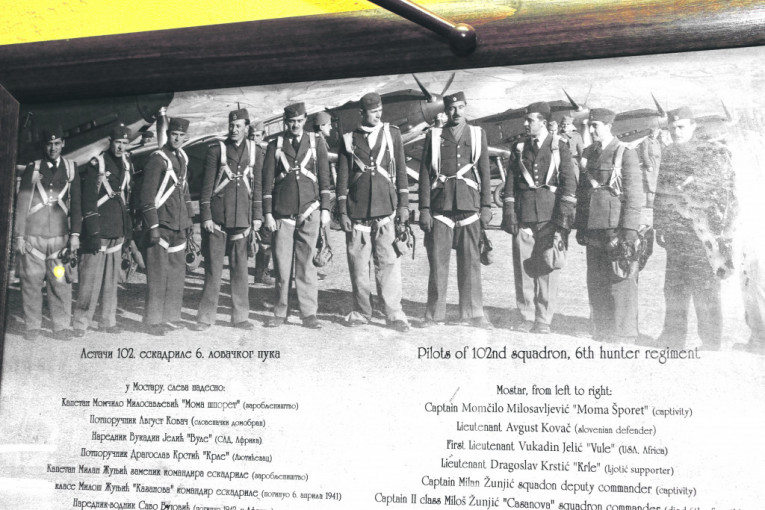 Летачи 102. ескадриле 6. ловачког пука
у Мостару, слева надесно:
Капетан Момчило Милосављевић "Мома шпорет" (заробљеништво)
Потпоручник Август Ковач (словеначки домобран)
Наредник Вукадин Јелић "Вуле" (САД, Африка)
Потпоручник Драгослав Крстић "Крле" (Љотићевац)
Капетан Милан Жуњић заменик командира ескадриле (заробљеништво)
класе Милош Жуњић "Казанова" командир ескадриле (погинуо 6. априла 1941)
Наредник-водник Саво
Pilots of 102nd squadron, 6th hunter regiment
Mostar, from left to right:
Captain Momčilo Milosavljević "Moma Šporet" (captivity)
Lieutenant Avgust Kovač (slovenian defender)
First Lieutenant Vukadin Jelić "Vule" (USA, Africa)
Lieutenant Dragoslav Krstić "Krle" (Ljotić supporter)
Captain Milan Žunjić squadon deputy commander (captivity)
Captain II class Miloš Žunjić "Casanova" squadron commander